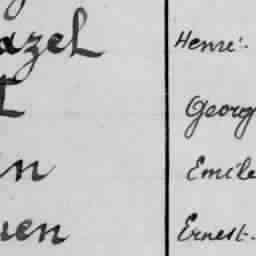 azel Henri.
t Georg
in Emile
uen Ernest.